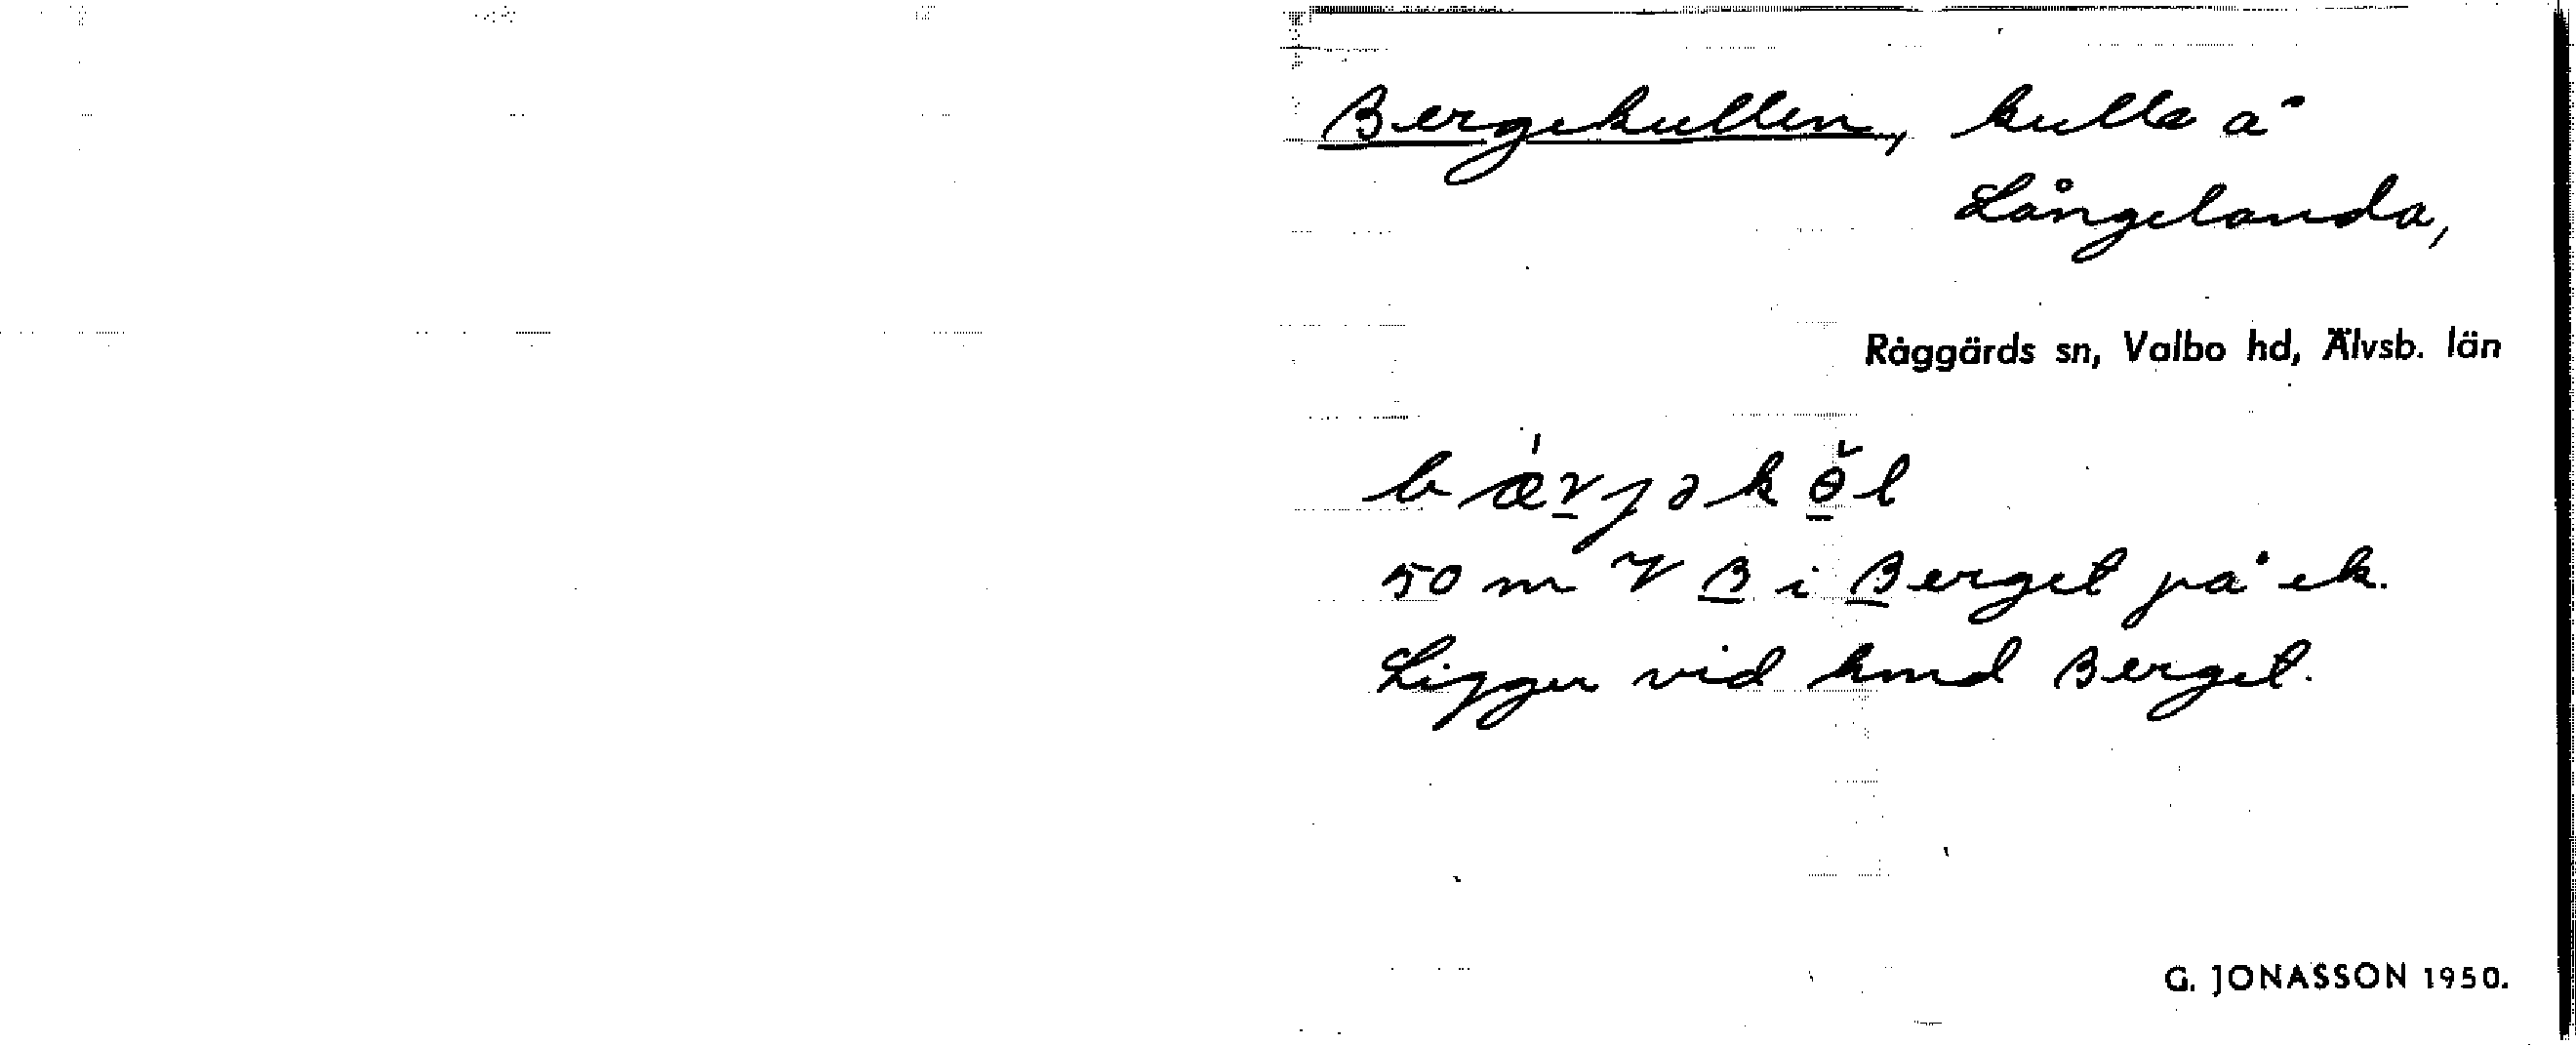 Bergekullen, kulle å
Långelanda,
Råggärds sn, Valbo hd, Älvsb. län
bǽrjəkɵ̆l
50 m V B i Berget på ek.
Ligger vid hmd Berget.
G. JONASSON 1950.